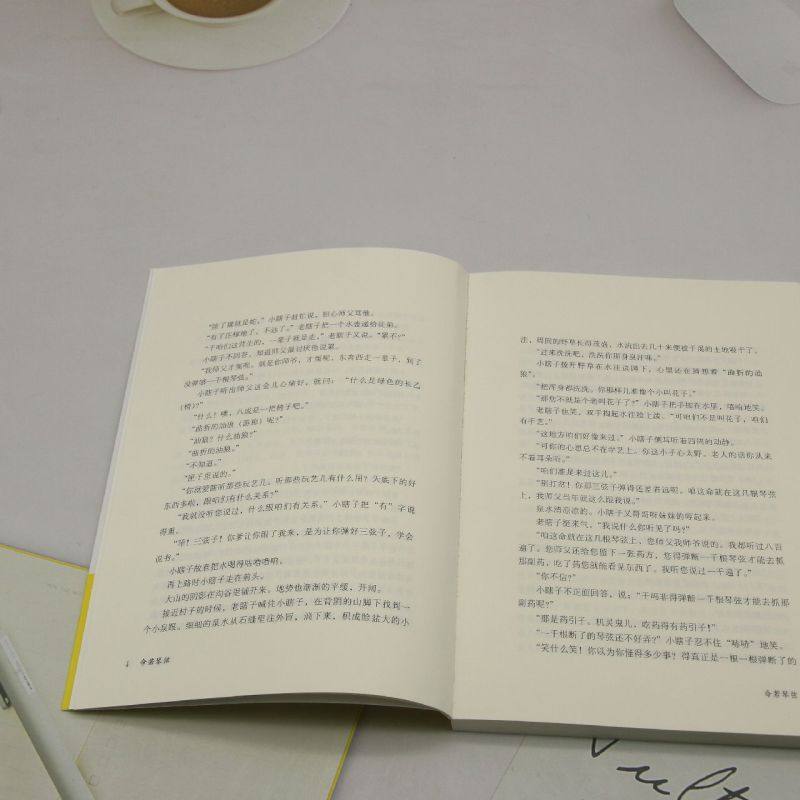 “除了獾就是蛇。”小瞎子赶忙说，担心师父骂他。
“有了庄稼地了，不远了。”老瞎子把一个水壶递给徒弟。
“干咱们这营生的，一辈子就是走，”老瞎子又说。“累不？”
小瞎子不回答，知道师父最讨厌他说累。
“我师父才冤呢。就是你师爷，才冤呢，东奔西走一辈子，到了
没弹够一千根琴弦。”
小瞎子听出师父这会儿心绪好，就问：“什么是绿色的长乙
（椅）？”
“什么？噢，八成是一把椅子吧。”
“曲折的油狼（游廊）呢？”
“油狼？什么油狼？”
“曲折的油狼。”
“不知道。”
“匣子里说的。”
“你就爱瞎听那些玩艺儿。听那些玩艺儿有什么用？天底下的好
东西多啦，跟咱们有什么关系？”
“我就没听您说过，什么跟咱们有关系。”小瞎子把“有”字说
得重。
“琴！三弦子！你爹让你跟了我来，是为让你弹好三弦子，学会
说书。”
小瞎子故意把水喝得咕噜噜响。
再上路时小瞎子走在前头。
大山的阴影在沟谷里铺开来。地势也渐渐的平缓，开阔。
接近村子的时候，老瞎子喊住小瞎子，在背阴的山脚下找到一
个小泉眼。细细的泉水从石缝里往外冒，淌下来，积成脸盆大的小
4 命若琴弦
洼，周围的野草长得茂盛，水流出去几十米便被干渴的土地吸干了。
“过来洗洗吧，洗洗你那身臭汗味。”
小瞎子拨开野草在水洼边蹲下，心里还在猜想着“曲折的油
狼”。
“把浑身都洗洗。你那样儿准像个小叫花子。”
“那您不就是个老叫花子了？”小瞎子把手按在水里，嘻嘻地笑。
老瞎子也笑，双手掬起水往脸上泼。“可咱们不是叫花子，咱们
有手艺。”
“这地方咱们好像来过。”小瞎子侧耳听着四周的动静。
“可你的心思总不在学艺上。你这小子心太野。老人的话你从来
不着耳朵听。”
“咱们准是来过这儿。”
“别打岔！你那三弦子弹得还差着远呢。咱这命就在这几根琴弦
上，我师父当年就这么跟我说。”
泉水清凉凉的。小瞎子又哥哥呀妹妹的哼起来。
老瞎子挺来气，“我说什么你听见了吗？”
“咱这命就在这几根琴弦上，您师父我师爷说的。我都听过八百
遍了。您师父还给您留下一张药方，您得弹断一千根琴弦才能去抓
那副药，吃了药您就能看见东西了。我听您说过一千遍了。”
“你不信？”
小瞎子不正面回答，说：“干吗非得弹断一千根琴弦才能去抓那
副药呢？”
“那是药引子。机灵鬼儿，吃药得有药引子！”
“一千根断了的琴弦还不好弄？”小瞎子忍不住“哧哧”地笑。
“笑什么笑！你以为你懂得多少事？得真正是一根一根弹断了的
命若琴弦